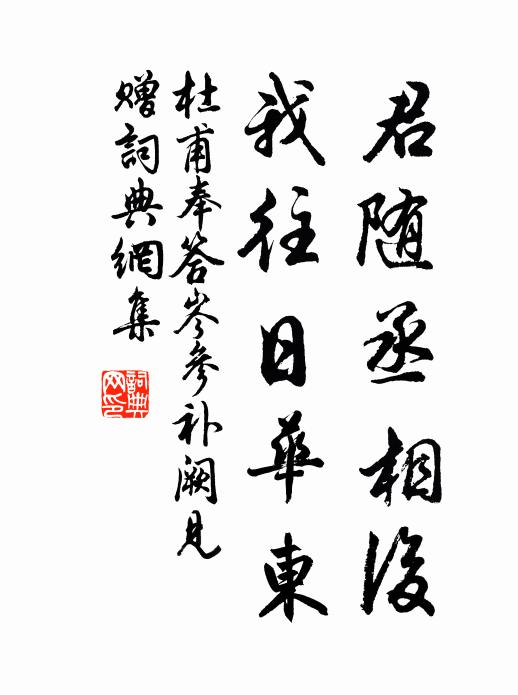 君随丞相後
我往日華東
杜甫奉答岑參补阙見
赠詞典網集
詞典
网印